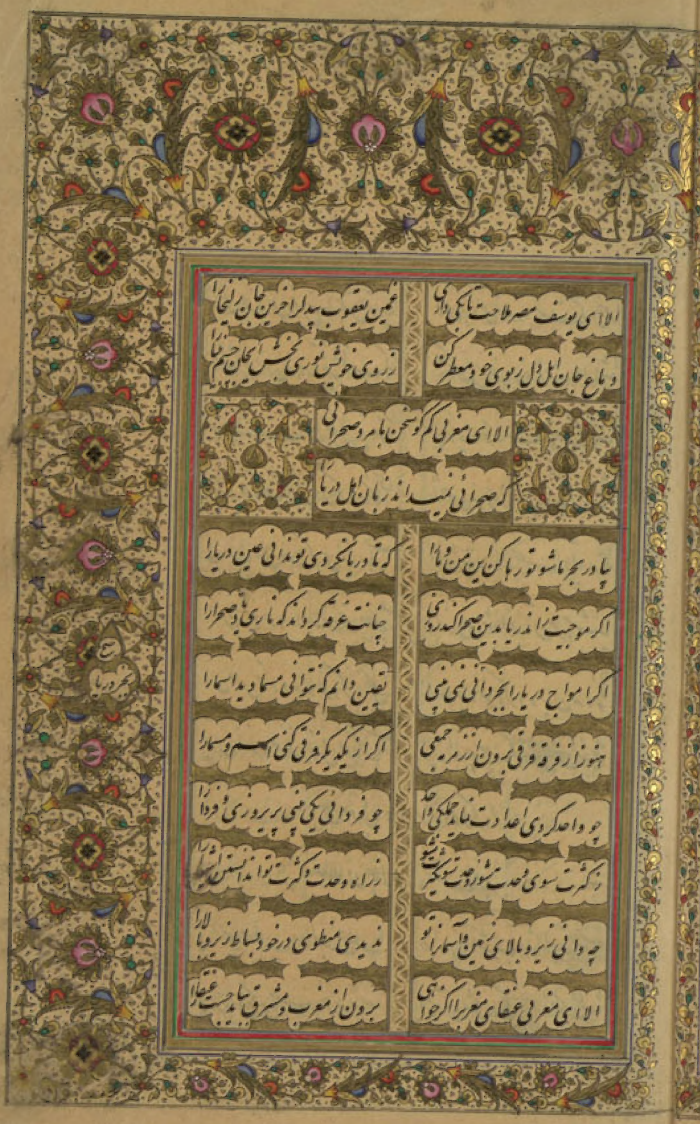 الا ای یوسف مصر ملاحت تا بکی داری غمین یعقوب بیدل را حزین جان زلیخا را
دماغ جان اهل دل ز بوی خود معطر کن ز روی خویش نوری بخش
الا ای مغربی کم کو سخن با مرد صحرائی
که صحرائی نمیداند زبان اهل دریا را
بیا در بحر ما شو تو رها کن این من و ما را که تا دریا نکردی تو ندانی عین دریا را
اکر موجیت زاندریا بدین صحرا کند روزی چنانت غرقه کرداند که ناری یاد صحرا را
اکر امواج دریا را بجز دریا نمی بینی یقین دانم که نتوانی مسما دید اسما را
هنوز از فرقه فرقی برون از زمره جمعی اکر از یکدیکر فرقی کنی اسم و مسما را
چو واحد کردی اعدادت نماید جملکی واحد چو فردائی یکی بینی پریر و دی و فردا را
ز کثرت سوی وحدت شو ز وحدت سوی کثرت ز راه وحدت و کثرت توان دانستن اشیا را
چه دانی زیر و بالای زمین و آسمانرا تو ندیدی منطوی در خود بساط زیر و بالا را
الا ای مغربی عنقای مغرب را اکر خواهی برون از مغرب و مشرق بباید جست عنقا را
بحر دریا